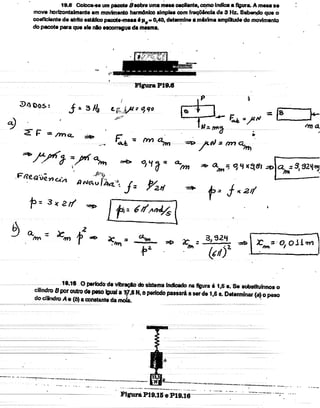 19.8 Coloca-se um pacote B sobre uma mesa oscilante, como indica a figura. A mesa se
move horizontalmente em movimento harmônico simples com freqüência de 3 Hz. Sabendo que o
coeficiente de atrito estático pacote-mesa é μ = 0,40, determine a máxima amplitude do movimento
do pacote para que ele não escorregue da mesma.
Figura P19.8
DADOS: f = 3 Hz e μ = 0,40
P
B
N = mg
Fat = μN
= B
m a
a) ΣF = ma ⇒ Fat = m am ⇒ μN = m am
⇒ μ m g = m am ⇒ 0,4 g = am ⇒ am = 0,4 x 9,81 ⇒ am = 3,924 m
FREQUÊNCIA ANGULAR: f = p/2π ⇒ p = f x 2π
p = 3 x 2π ⇒ p = 6π rad/s
b) am = xm p² ⇒ xm = am/p² ⇒ xm = 3,924/(6π)² ⇒ xm = 0,011 m
19.16 O período de vibração do sistema indicado na figura é 1,5 s. Se substituirmos o
cilindro B por outro de peso igual a N, o período passará a ser de 1,6 s. Determinar (a) o peso
do cilindro A e (b) a constante da mola.
Figura P19.15 e P19.16